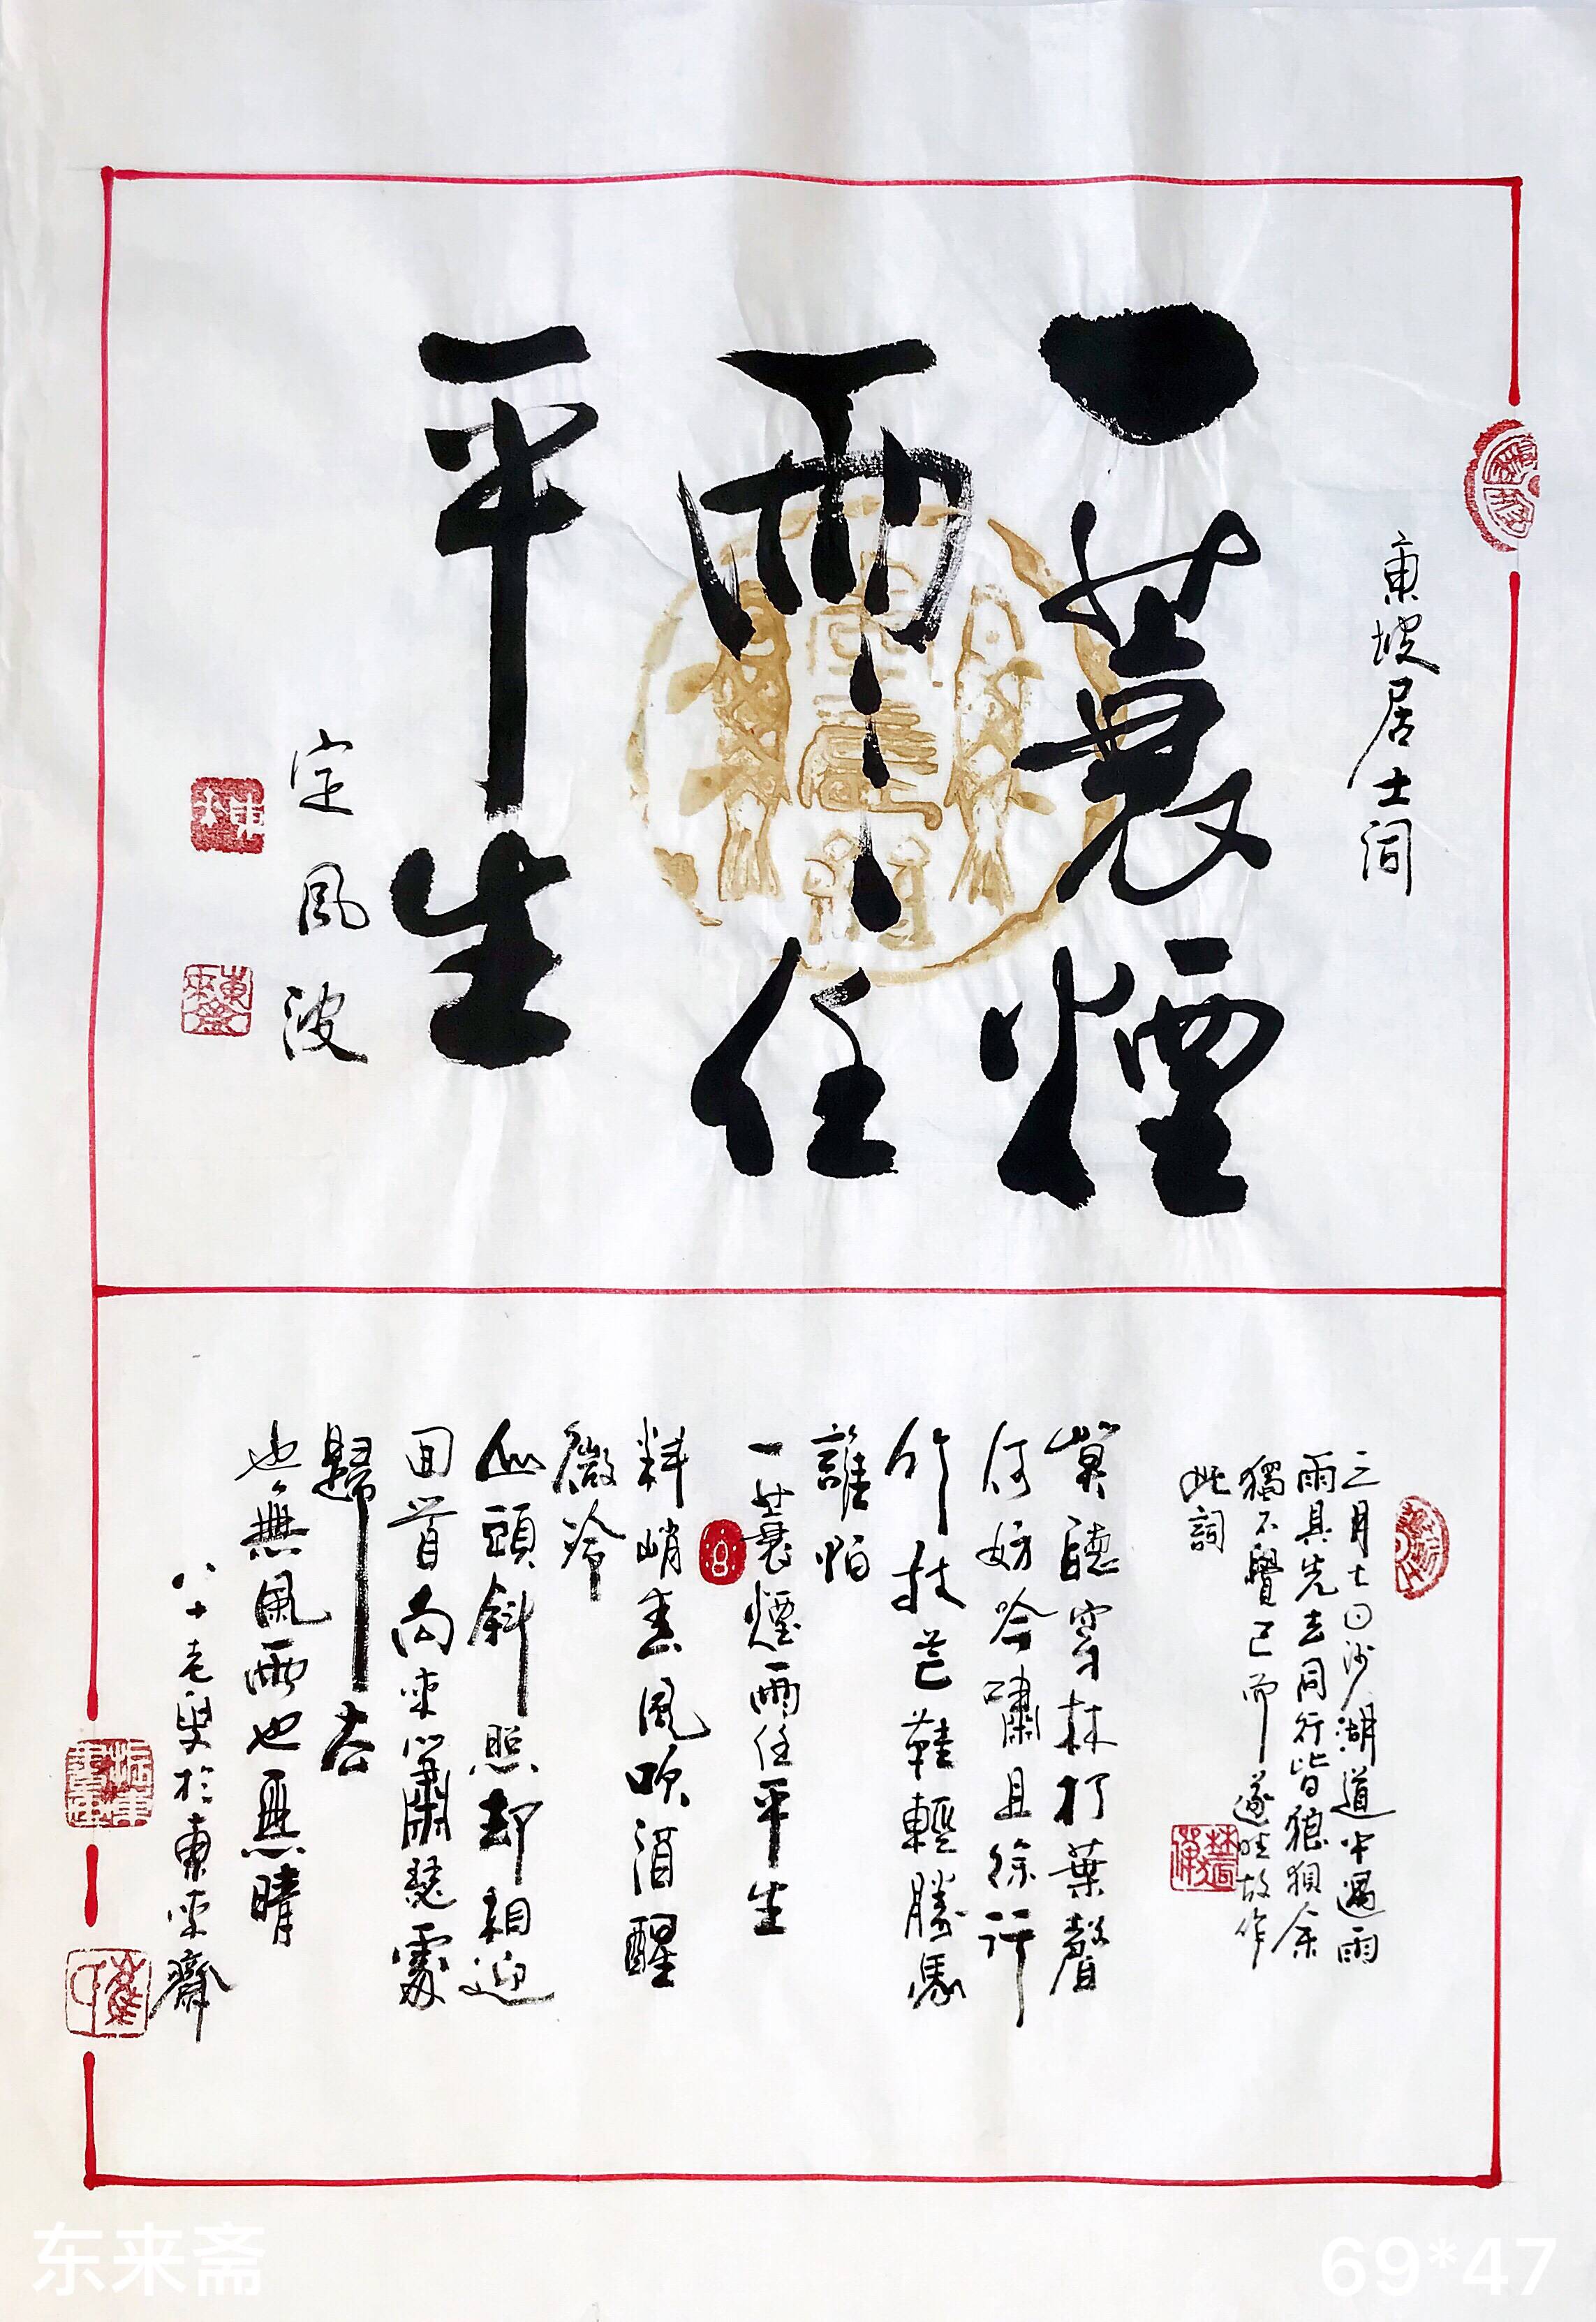 東坡居士词
一蓑煙
雨任
平生
定風波
三月七日沙湖道中遇雨
雨具先去同行皆狼狽余
獨不覺已而遂晴故作
此詞
莫聽穿林打葉聲
何妨吟嘯且徐行
竹杖芒鞋輕勝馬
誰怕
一蓑煙雨任平生
料峭春風吹酒醒
微冷
山頭斜照却相迎
回首向来蕭瑟處
歸去
也無風雨也無晴
八十老叟於東来齋
东来斋
69*47